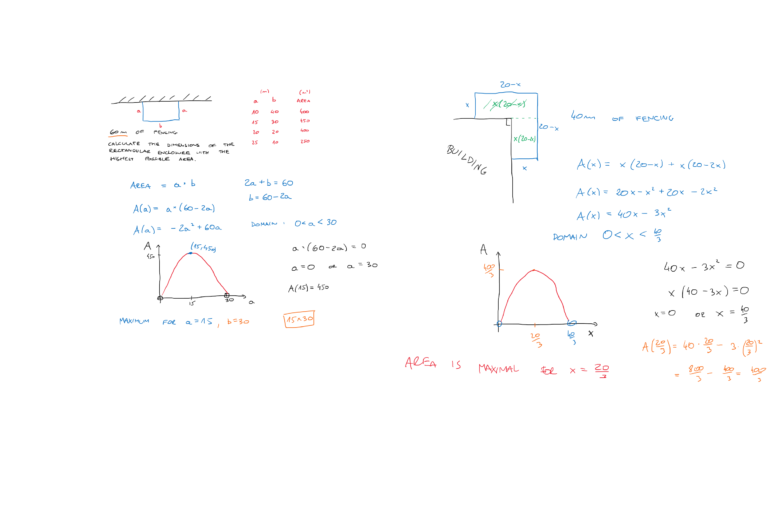 a
a
b
60m OF FENCING
CALCULATE THE DIMENSIONS OF THE
RECTANGULAR ENCLOSURE WITH THE
HIGHEST POSSIBLE AREA.
(m) (m²)
a b AREA
10 40 400
15 30 450
20 20 400
25 10 250
AREA = a · b
2a + b = 60
b = 60 - 2a
A(a) = a · (60 - 2a)
A(a) = -2a² + 60a
DOMAIN: 0 < a < 30
A
450
(15, 450)
15
30
a
a · (60 - 2a) = 0
a = 0 OR a = 30
A(15) = 450
MAXIMUM FOR a = 15, b = 30
15 x 30
20-x
x
x(20-x)
20-x
x(20-2x)
x
BUILDING
40m OF FENCING
A(x) = x(20-x) + x(20-2x)
A(x) = 20x - x² + 20x - 2x²
A(x) = 40x - 3x²
DOMAIN 0 < x < 40/3
A
400/3
20/3
40/3
x
40x - 3x² = 0
x(40 - 3x) = 0
x = 0 OR x = 40/3
A(20/3) = 40 · 20/3 - 3 · (20/3)²
= 800/3 - 400/3 = 400/3
AREA IS MAXIMAL FOR x = 20/3